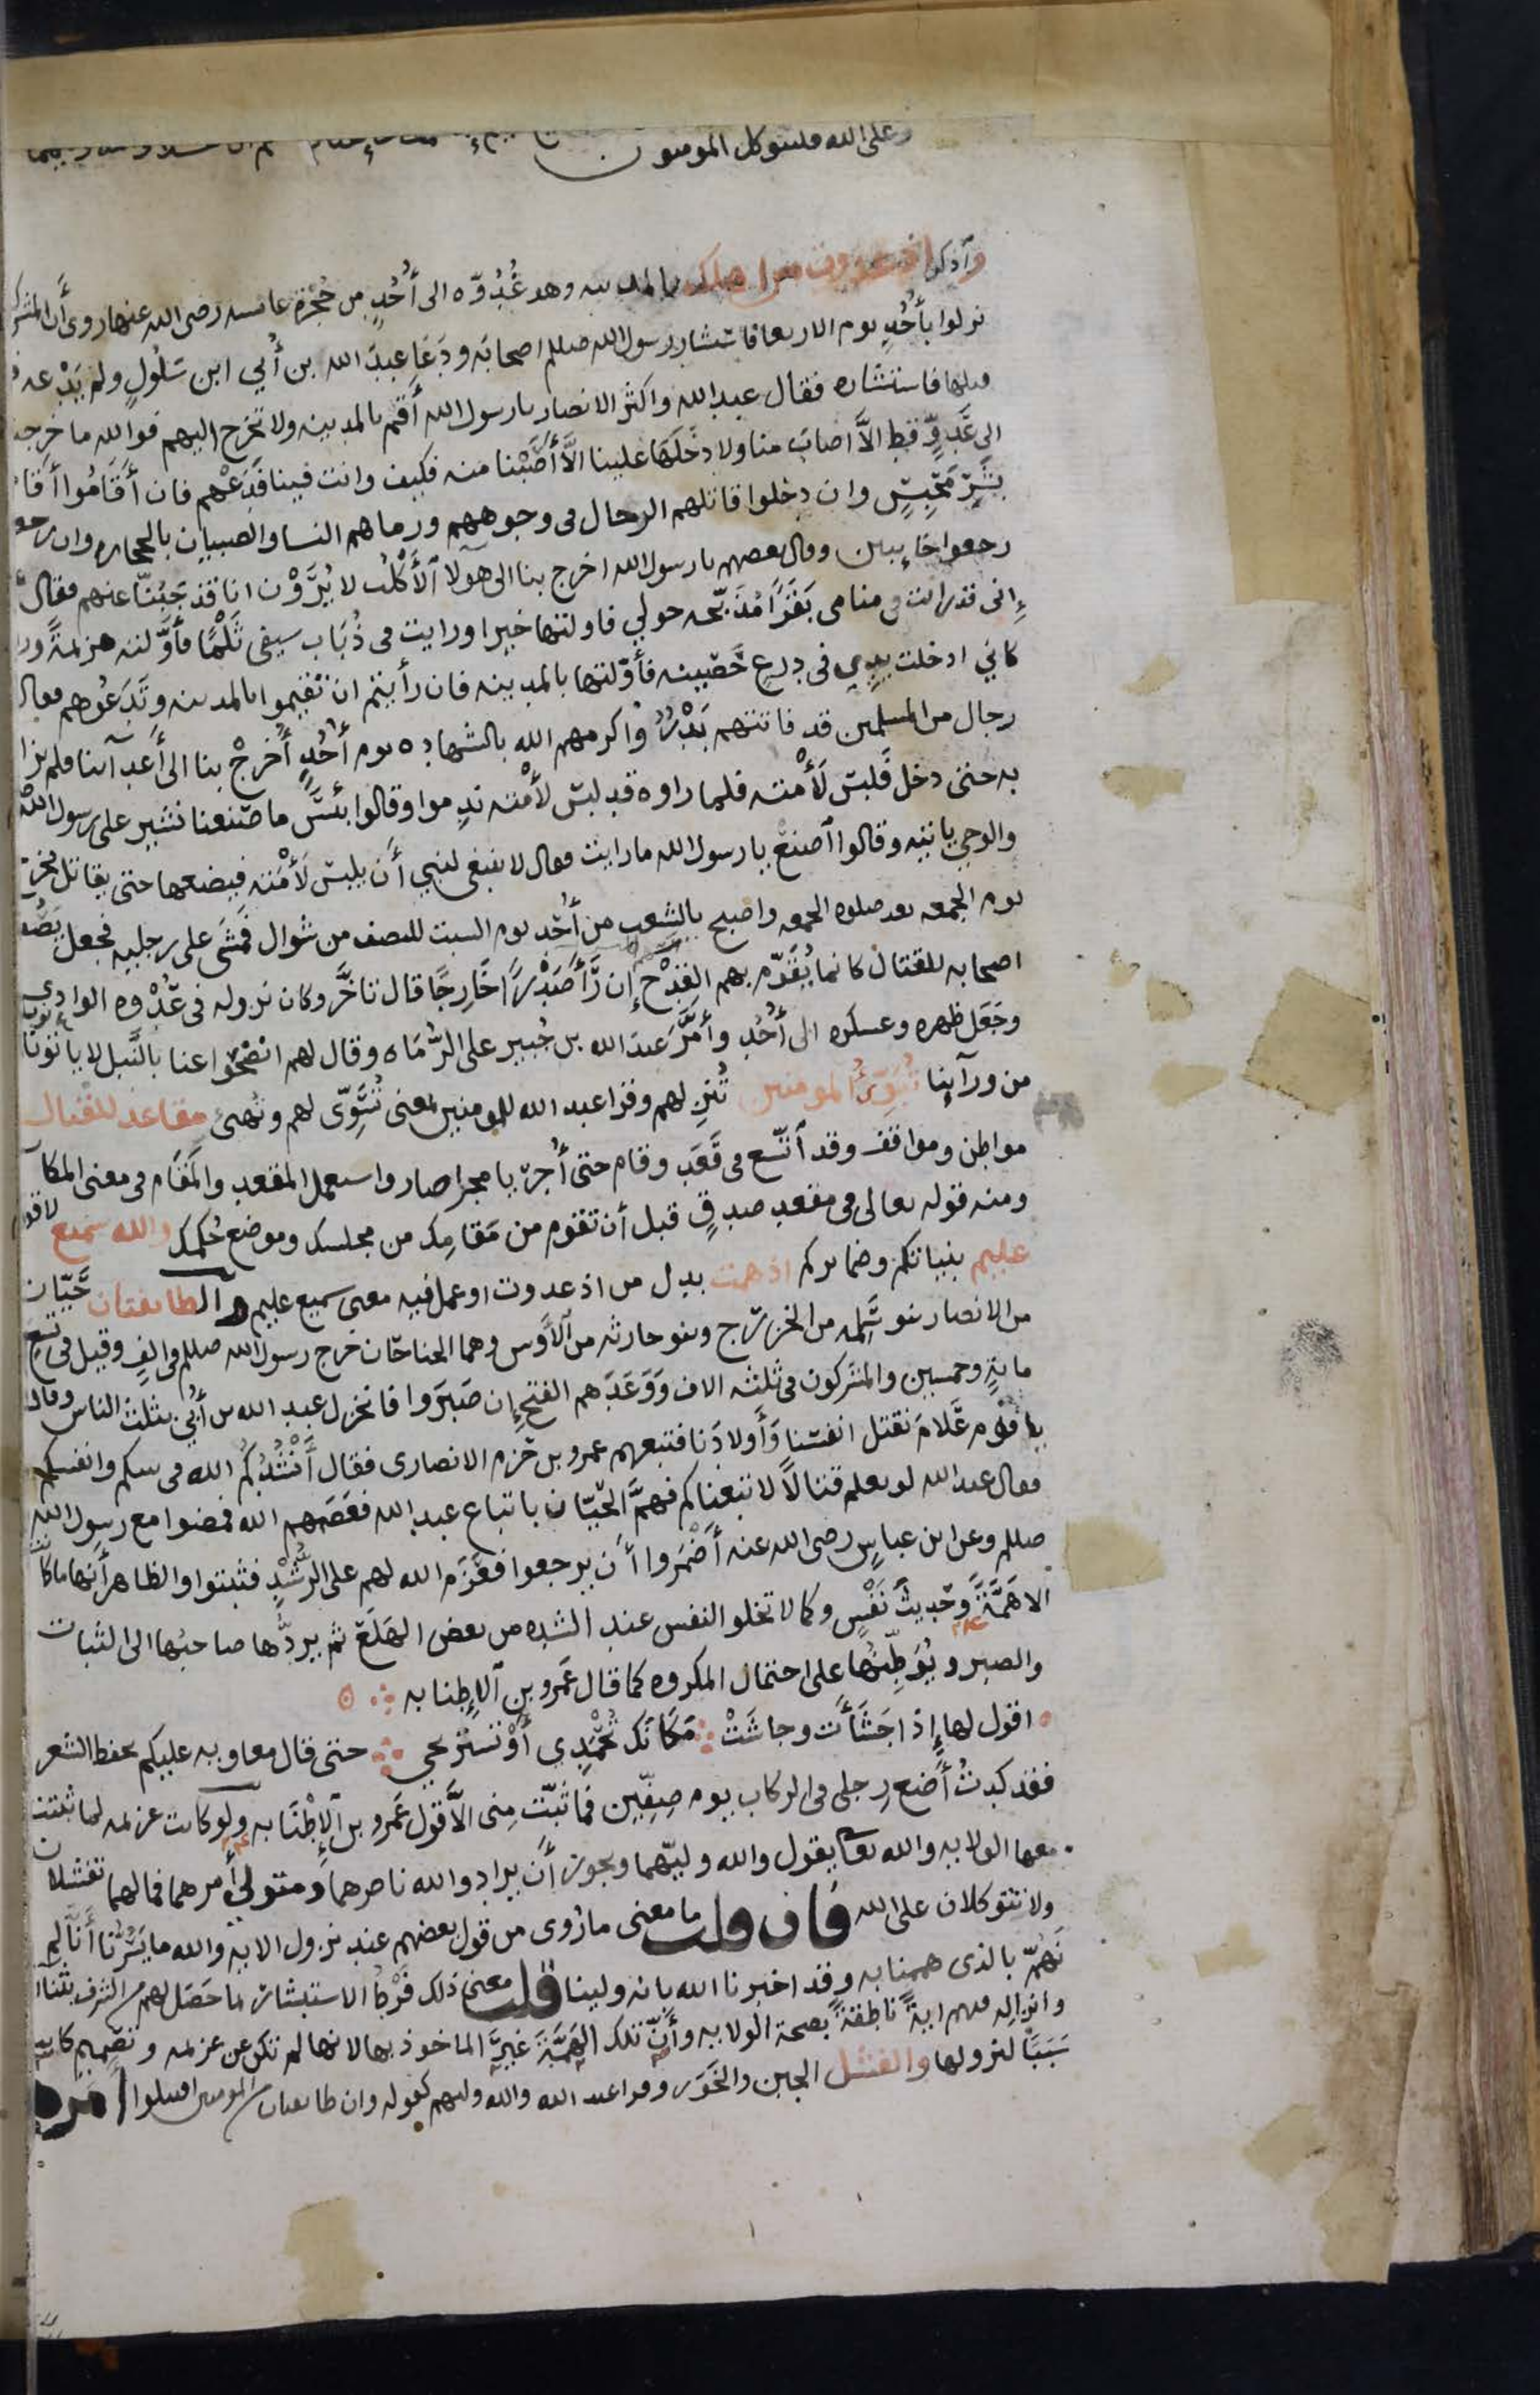 وعلى الله فليتوكل المومنون
واذكر اذ غدوت من اهلك بالمدينه وهو غُدُوّه الى أُحُدٍ من حُجْرة عائشه رضى الله عنها روى أن المشركـ
نزلوا بأُحُدٍ يوم الاربعا فاستشار رسول الله صلىلم اصحابه ودَعَا عبدَ الله بن أُبي ابن سَلُولٍ ولم يَدْعه
قبلها فاستشاره فقال عبد الله واكثر الانصار يا رسول الله أَقم بالمدينه ولا تخرج اليهم فوالله ما خرجنا
الى عَدُوٍّ قط الاَّ اصابَ منا ولا دَخَلَهَا علينا الاَّ أَصَبْنا منه فكيف وانت فينا فَدَعْهم فان أَقَامُوا أقا
بشَرِّ مَحْبِسٍ وان دخلوا قاتلهم الرجال فى وجوههم ورماهم النسا والصبيان بالحجاره وان رجعوا
رجعوا خايبين وقال بعضهم يا رسول الله اخرج بنا الى هولآ الأَكْلُب لا يَرَوْن انا قد جَبُنّا عنهم فقال
إنى قد رايت فى منامى بَقَرًا مُذَبَّحه حولي فاولتها خيرا ورايت فى ذُبَاب سيفى ثَلْمًا فأَوّلته هزيمةً ورا
كانّي ادخلت يدي فى درع حَصِينه فأوّلتها بالمدينه فان رأيتم ان تُقيموا بالمدينه وتَدَعُوهم فقال
رجال من المسلمين قد فاتتهم بَدْرٌ واكرمهم الله بالشهاده يوم أُحُدٍ أُخرجْ بنا الى أَعدآئنا فلم يزا
به حتى دخل فَلبسَ لَأْمته فلما راوه قد لبسَ لأْمته ندِموا وقالوا بئسَ ما صَنعنا نشير على رسول الله
والوحي ياتيه وقالوا اصنعْ يا رسول الله ما رايت فقال لا ينبغى لنبي أن يلبسَ لَأْمته فيضعها حتى يقاتل فخر
يوم الجمعه بعد صلوه الجمعه واصبح بالشعب من أُحُد يوم السبت للنصف من شوال فمشَى على رجليه فجعل يَصُفّ
اصحابه للقتال كانما يُقَوّم بهم القِدْح إن رَأَى صَدْرًا خَارِجًا قال تاخَّر وكان نزوله فى عُدْوه الوادي
وجَعَل ظهره وعسكره الى أُحُدٍ وأَمَّرَ عبدَ الله بن جُبير على الرُّمَاه وقال لهم انضَحُوا عنا بالنَّبل لا ياتونا
من ورآئنا تُبَوِّئُ المومنين تُنزِلهم وقرا عبد الله للمومنين بمعنى تُسَوّى لهم وتُهيئ مقاعد للقتال
مواطن ومواقف وقد اتسع فى قَعَد وقام حتى أُجريا مجرا صار واستعمل المقعد والمَقَام فى معنى المكان
ومنه قوله تعالى فى مقعد صدقٍ قبل أن تقوم من مَقامِك من مجلسك وموضع حُكمك والله سميع لاقوا
عليم بنياتكم وضمايركم اذ همت بدل من اذ غدوت او عمل فيه معنى سميع عليم والطائفتان حَيّان
من الانصار بنو سَلِمه من الخزرج وبنو حارثه من الأَوس وهما الجناحان خرج رسول الله صلىلم فى الفٍ وقيل فى تسع
مايةٍ وخمسين والمشركون فى ثلثه الاف وَوَعَدَهم الفتح إن صَبَرُوا فانخزل عبد الله بن أُبي بثلث الناس وقال
يا قوم عَلامَ نقتل انفسَنا وَأَولادَنا فتبعهم عمرو بن حَزم الانصارى فقال أَنْشُدُكم الله فى نبيكم وانفسكم
فقال عبد الله لو نعلم قتالاً لاتبعناكم فهمَّ الحَيّان باتباع عبد الله فعصَمهم الله فمضوا مع رسول الله
صلىلم وعن ابن عباس رضى الله عنه أَضْمَروا أَن يرجعوا فعَزَم الله لهم على الرُّشْدِ فثبتوا والظاهر أنها ما كانت
الا هَمَّةً وحَديثَ نَفْسٍ وكما لا تخلو النفس عند الشده من بعض الهَلَع ثم يردُّها صاحبُها الى الثبات
والصبر ويُوَطِّنُها على احتمال المكروه كما قال عَمرو بن الإِطنابه
اقول لها إذا جَشَأَت وجاشَتْ مَكانَكِ تُحْمَدِي أَوْ تستريحي حتى قال معاويه عليكم بحفظ الشعر
فقد كدتُ أَضَع رِجلى فى الركاب يوم صِفِّين فما ثَبَّتَ مِنى الاَّ قول عَمرو بن الإِطْنَابه ولو كانت عزيمه لما ثبتت
معها الولايه والله تعا يقول والله وليّهما ويجوز أَن يراد والله ناصرهما ومتولى أمرهما فما لهما تفشلان
ولا تتوكلان على الله فان قلت ما معنى ما رُوى من قول بعضهم عند نزول الايه والله ما يَسُرُّنا أَنّا لم
نَهُمّ بالذى هممنا به وقد اخبرنا الله بانه ولينا قلت معنى ذلك فَرْطُ الاستبشار بما حَصَل لهم من الشرف بثنا الله
وانزاله فيهم ايةً ناطقةً بصحة الولايه وأَنّ تلك الهَمَّةَ غيرُ الماخوذ بها لانها لم تكن عن عزيمه وتصميم كانت
سَبَبًا لنزولها والفشل الجبن والخَوَر وقرا عبد الله والله وليهم كقوله وان طايفتان من المومنين اقتتلوا امر